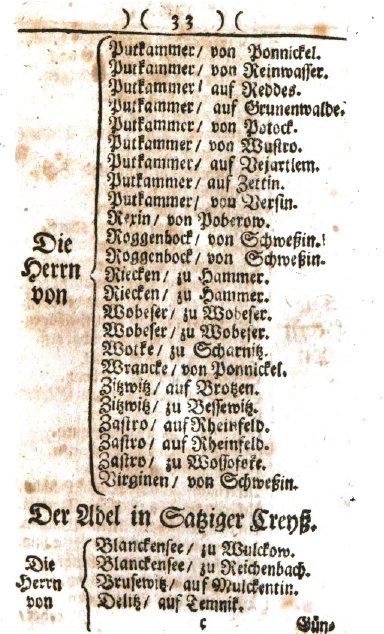 ) ( 33 ) (
Putkammer/ von Ponnickel.
Putkammer/ von Reinwasser.
Putkammer/ auf Reddes.
Putkammer/ auf Grunenwalde.
Putkammer/ von Potock.
Putkammer/ von Wustro.
Putkammer/ auf Vejartlem.
Putkammer/ auf Zettin.
Putkammer/ von Versin.
Rexin/ von Poberow.
Die Herrn von
Roggenbock/ von Schweßin.
Roggenbock/ von Schweßin.
Riecken/ zu Hammer.
Riecken/ zu Hammer.
Wobeser/ zu Wobeser.
Wobeser/ zu Wobeser.
Wotke/ zu Scharnitz.
Wrancke/ von Ponnickel.
Zitzwitz/ auf Brotzen.
Zitzwitz/ zu Bessewitz.
Zastro/ auf Rheinfeld.
Zastro/ auf Rheinfeld.
Zastro/ zu
Virginen/ von Schweßin.
Der Adel in Satziger Creyß.
Die Herrn von
Blanckensee/ zu Wulckow.
Blanckensee/ zu Reichenbach.
Brusewitz/ auf Mulckentin.
Delitz/ auf Temnik.
c Gün-